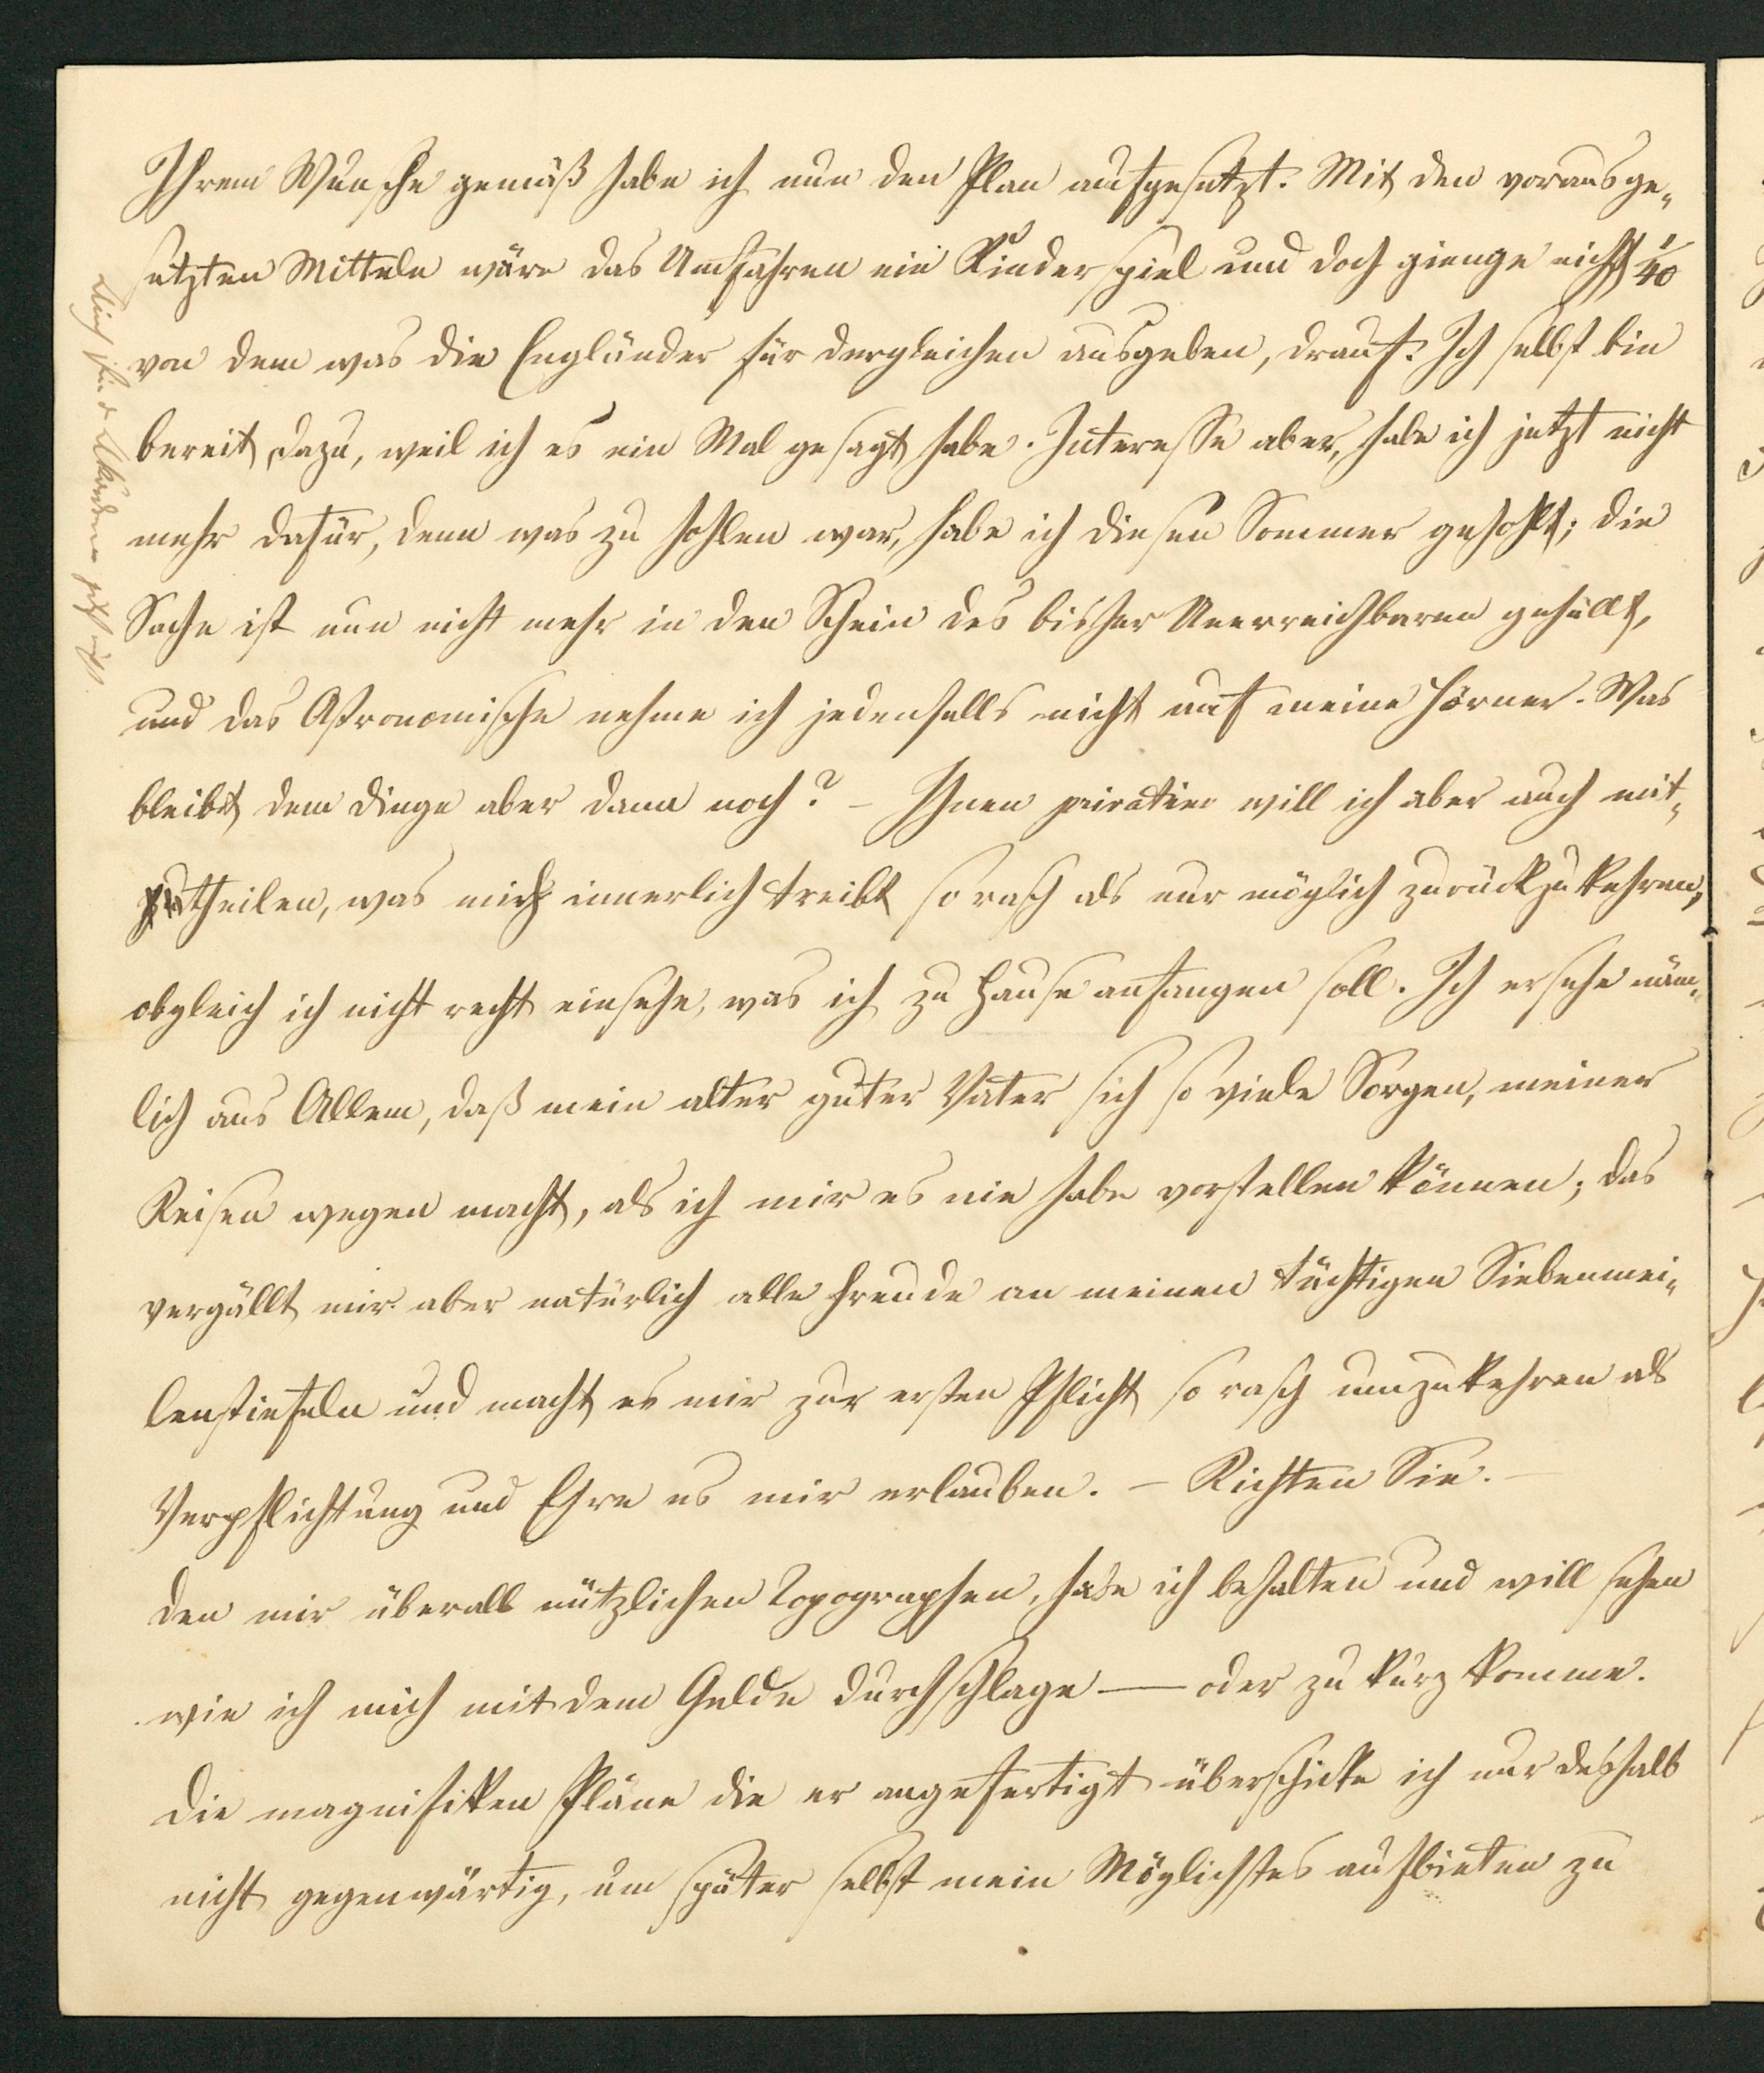 Ihrem Wunsche gemäß habe ich nun den Plan aufgesetzt. Mit den vorausge-
setzten Mitteln wäre das Umfahren ein Kinderspiel und doch gienge nicht 1/40
von dem was die Engländer für dergleichen ausgeben, drauf. Ich selbst bin
bereit dazu, weil ich es ein Mal gesagt habe. Interesse aber, habe ich jetzt nicht
mehr dafür, denn was zu hohlen war, habe ich diesen Sommer gehohlt; die
Sache ist nun nicht mehr in den Schein des bisher Unerreichbaren gehüllt,
und das Astronomische nehme ich jedenfalls nicht auf meine Hörner. Was
bleibt dem Dinge aber dann noch? – Ihnen privatim will ich aber auch mit-
zutheilen, was mich innerlich treibt so rasch als nur möglich zurückzukehren,
obgleich ich nicht recht einsehe, was ich zu Hause anfangen soll. Ich ersehe näm-
lich aus Allem, daß mein alter guter Vater sich so viele Sorgen, meiner
Reisen wegen macht, als ich mir es nie habe vorstellen können; das
vergällt mir aber natürlich alle Freude an meinen tüchtigen Siebenmei-
lenstiefeln und macht es mir zur ersten Pflicht so rasch umzukehren als
Verpflichtung und Ehre es mir erlauben. – Richten Sie. –
Den mir überall nützlichen Topographen, habe ich behalten und will sehen
wie ich mich mit dem Gelde durchschlage — oder zu kurz komme.
Die magnifiken Pläne die er angefertigt überschicke ich nur deshalb
nicht gegenwärtig, um später selbst mein Möglichstes aufbieten zu